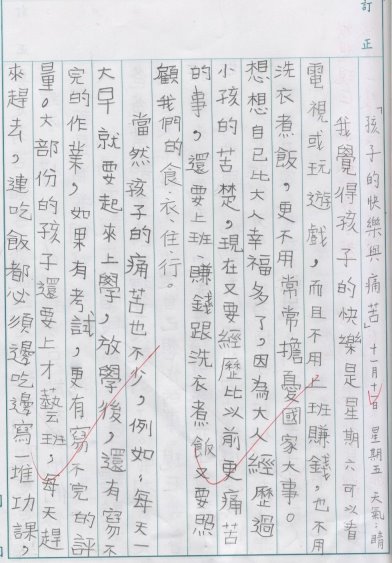 訂正
「孩子的快樂與痛苦」十一月十日 星期五 天氣：晴
我覺得孩子的快樂是星期六可以看
電視或玩遊戲，而且不用上班賺錢，也不用
洗衣煮飯，更不用常常擔憂國家大事。
想想自己比大人幸福多了，因為大人經歷過
小孩的苦楚，現在又要經歷比以前更痛苦
的事，還要上班、賺錢跟洗衣煮飯又要照
顧我們的食、衣、住、行。
當然孩子的痛苦也不少，例如，每天一
大早就要起來上學，放學後，還有寫不
完的作業，如果有考試，更有寫不完的評
量。大部份的孩子還要上才藝班，每天趕
來趕去，連吃飯都必須邊吃邊寫一堆功課，